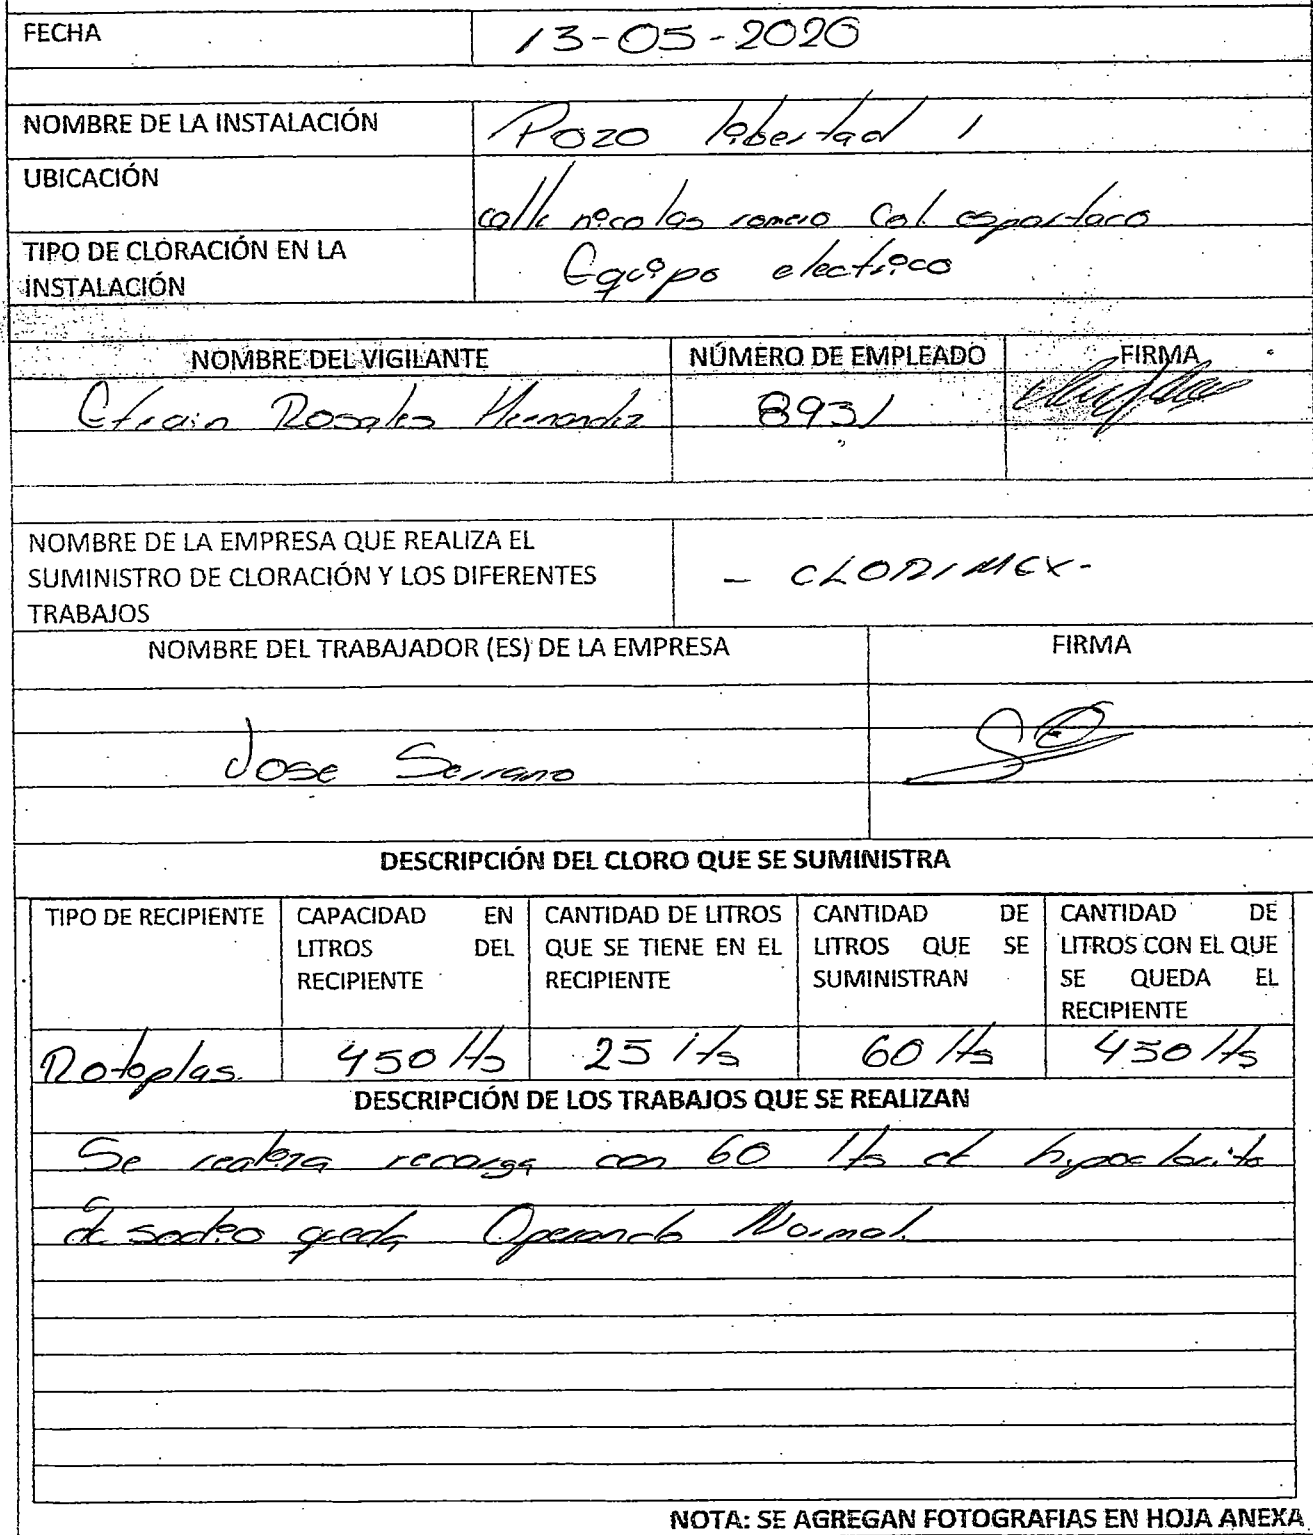 FECHA 13-05-2020
NOMBRE DE LA INSTALACIÓN Pozo libertad 1
UBICACIÓN
calle nicolas romero Col. espartaco
TIPO DE CLORACIÓN EN LA
INSTALACIÓN
Equipo electrico
NOMBRE DEL VIGILANTE NÚMERO DE EMPLEADO FIRMA
Efrain Rosales Hernandez 8931
NOMBRE DE LA EMPRESA QUE REALIZA EL
SUMINISTRO DE CLORACIÓN Y LOS DIFERENTES
TRABAJOS
- CLORIMEX-
NOMBRE DEL TRABAJADOR (ES) DE LA EMPRESA FIRMA
Jose Serrano
DESCRIPCIÓN DEL CLORO QUE SE SUMINISTRA
TIPO DE RECIPIENTE
CAPACIDAD EN
LITROS DEL
RECIPIENTE
CANTIDAD DE LITROS
QUE SE TIENE EN EL
RECIPIENTE
CANTIDAD DE
LITROS QUE SE
SUMINISTRAN
CANTIDAD DE
LITROS CON EL QUE
SE QUEDA EL
RECIPIENTE
Rotoplas. 450 lts 25 lts 60 lts 450 lts
DESCRIPCIÓN DE LOS TRABAJOS QUE SE REALIZAN
Se realiza recarga con 60 lts de hipoclorito
de sodio queda Operando Normal.
NOTA: SE AGREGAN FOTOGRAFIAS EN HOJA ANEXA